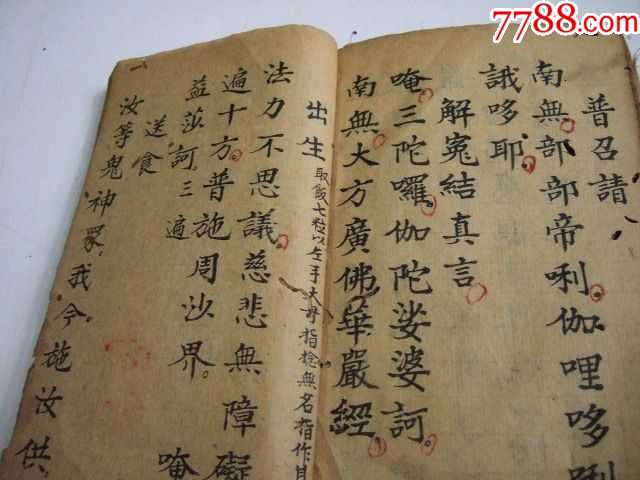 7788.com
普召請
南無部部帝唎。伽哩哆唎
誐哆耶。
解寃結真言
唵。三陀囉。伽陀娑婆訶。
南無大方廣佛華嚴經。
出生 取飯七粒以左手大母指捻無名指作
法力不思議。慈悲無障礙
遍十方。普施周沙界。唵
益莎訶。三遍
送食
汝等鬼神眾。我今施汝供